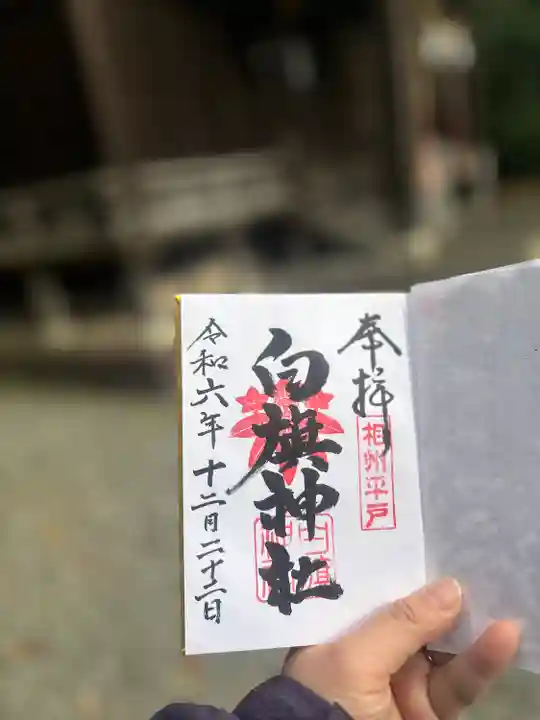 奉拝
相州平戸
白旗神社
令和六年十二月二十二日